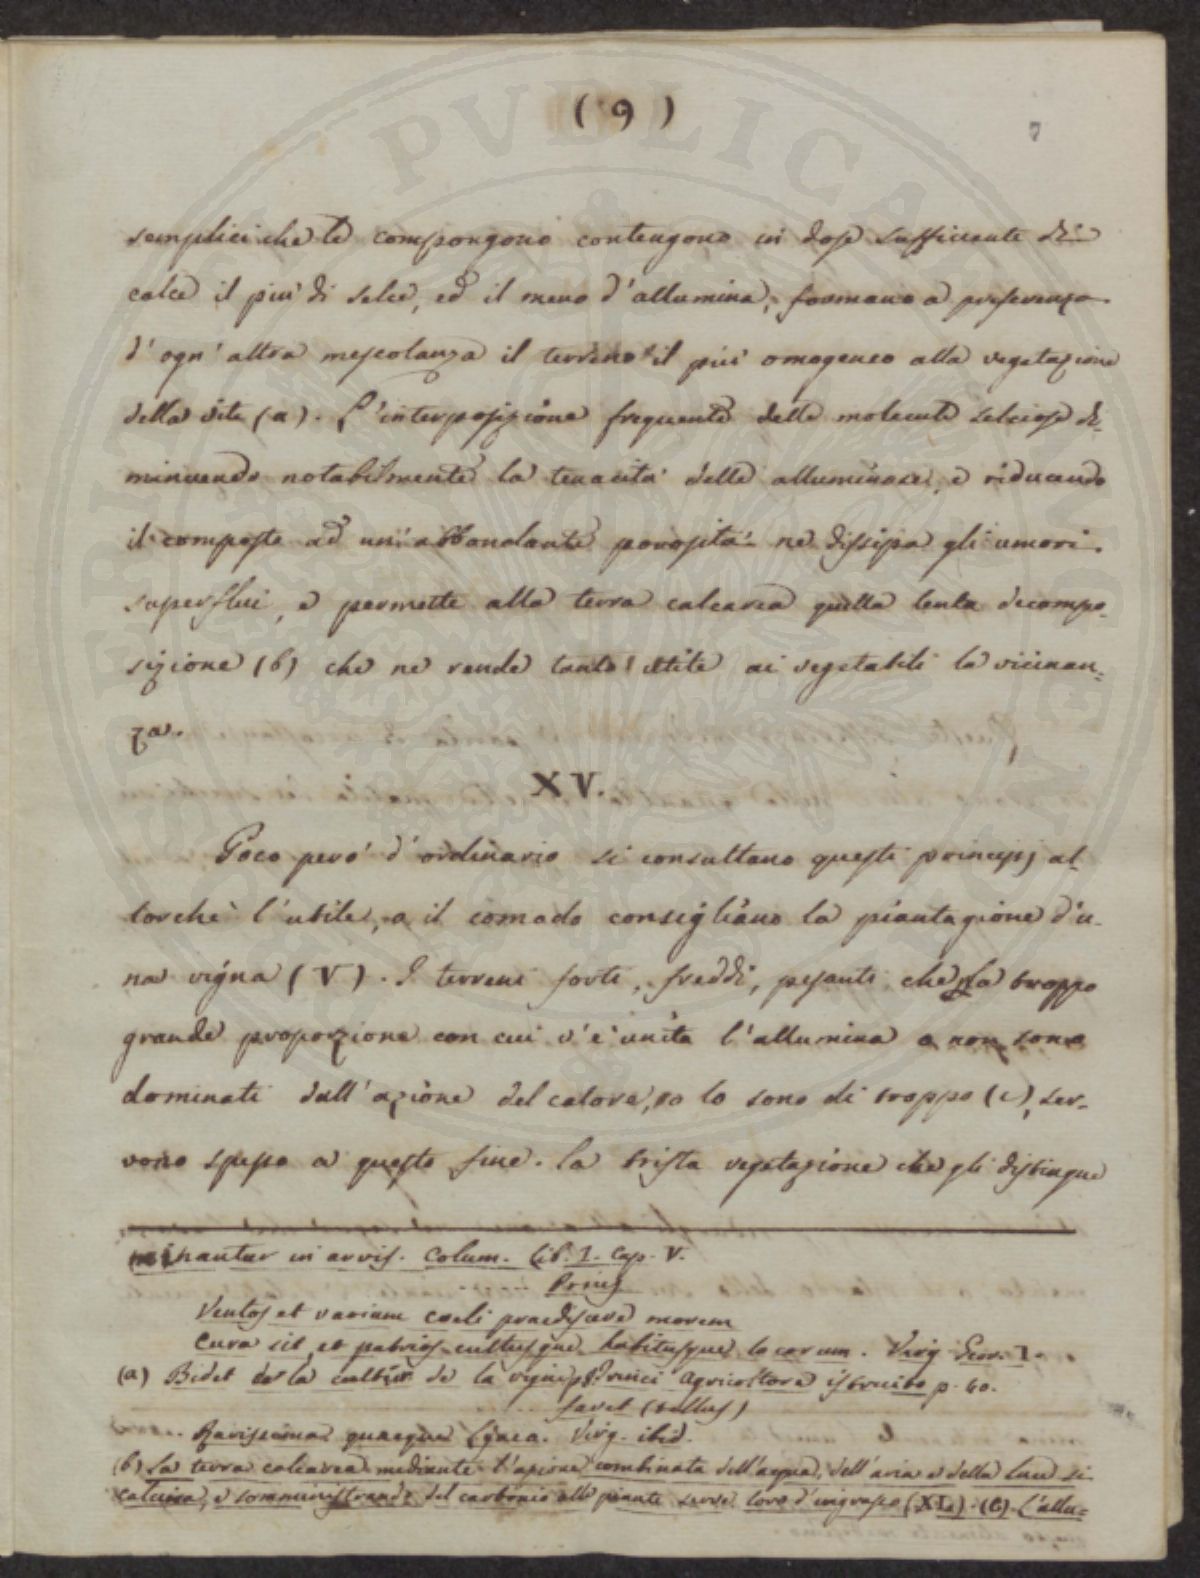 ( 9 )
7
semplici che le compongono contengono in dose sufficiente di
calce il più di selce, ed il meno d'allumina, formano a preferenza
d'ogn'altra mescolanza il terreno il più omogeneo alla vegetazione
della vite (a). L'interposizione frequente delle molecule selciose di-
minuendo notabilmente la tenacità delle alluminose, e riducendo
il composto ad un'abbondante porosità ne dissipa gli umori
superflui, e permette alla terra calcarea quella lenta decompo-
sizione (b) che ne rende tanto utile ai vegetabili la vicinan-
za.
XV.
Poco però d'ordinario si consultano questi principj al-
lorchè l'utile, o il comodo consigliano la piantagione d'u-
na vigna (V). I terreni forti, freddi, pesanti che la troppo
grande proporzione con cui v'è unita l'allumina o non sono
dominati dall'azione del calore, o lo sono di troppo (c), ser-
vono spesso a questo fine. La trista vegetazione che gli distingue
minantur in arvis. Colum. Lib. I. Cap. V.
Prius
Ventos et varium coeli praediscere morem
Cura sit, et patrios cultusque habitusque locorum. Virg. Geor. I.
(a) Bidet de la culture de la vigne p. Trinci Agricoltore istruito p. 60.
favet (tellus)
Rarissima quaeque Lyaeo. Virg. ibid.
(b) La terra calcarea mediante l'azione combinata dell'acqua, dell'aria e della luce si
calcina, e somministrando del carbonio alle piante serve loro d'ingrasso (XL.) (c) L'allu=